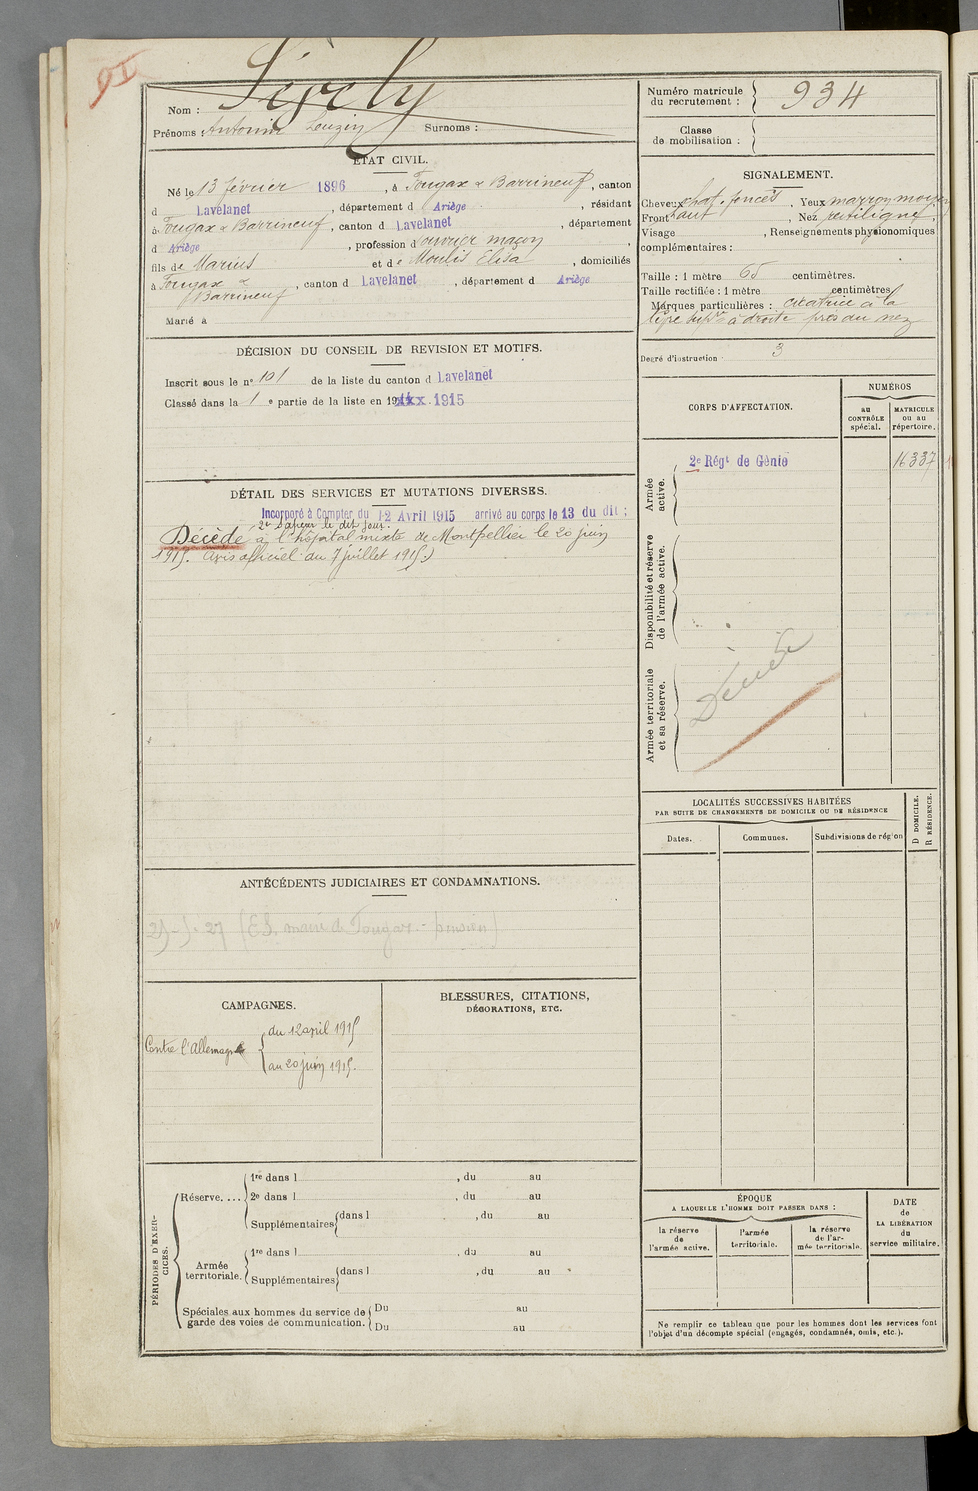 Nom :
Prénoms : Antonin Leuzin Surnoms :
ÉTAT CIVIL.
Né le 13 février 1896, à Fougax & Barrineuf, canton
d Lavelanet, département d Ariège, résidant
à Fougax & Barrineuf, canton d Lavelanet, département
d Ariège, profession d'ouvrier maçon,
fils de Marius et de Moulis Elisa, domiciliés
à Fougax &
Barrineuf, canton d Lavelanet, département d Ariège
Marié à
DÉCISION DU CONSEIL DE REVISION ET MOTIFS.
Inscrit sous le n° 101 de la liste du canton d Lavelanet
Classé dans la 1 e partie de la liste en 19 1915
DÉTAIL DES SERVICES ET MUTATIONS DIVERSES.
Incorporé à Compter du 12 Avril 1915 arrivé au corps le 13 du dit ;
2e Sapeur le dit jour.
Décédé à l'hôpital mixte de Montpellier le 20 juin
1915. (avis officiel du 7 juillet 1915)
ANTÉCÉDENTS JUDICIAIRES ET CONDAMNATIONS.
CAMPAGNES.
Contre l'Allemagne
du 12 avril 1915
au 20 juin 1915.
BLESSURES, CITATIONS,
DÉCORATIONS, ETC.
PÉRIODES D'EXERCICES.
Réserve....
1re dans l , du au
2e dans l , du au
Supplémentaires dans l , du au
Armée
territoriale.
1re dans l , du au
Supplémentaires dans l , du au
Spéciales aux hommes du service de
garde des voies de communication.
Du au
Du au
Numéro matricule
du recrutement : 934
Classe
de mobilisation :
SIGNALEMENT.
Cheveux chat. foncés, Yeux marron moyen
Front haut, Nez rectiligne;
Visage , Renseignements physionomiques
complémentaires :
Taille : 1 mètre 65 centimètres.
Taille rectifiée : 1 mètre centimètres.
Marques particulières : cicatrice à la
lèvre supre à droite près du nez
Degré d'instruction 3
CORPS D'AFFECTATION.
NUMÉROS
au
CONTRÔLE
spécial.
MATRICULE
ou au
répertoire.
Armée
active.
2e Régt de Génie 16337
Disponibilité et réserve
de l'armée active.
Armée territoriale
et sa réserve.
Décédé
LOCALITÉS SUCCESSIVES HABITÉES
PAR SUITE DE CHANGEMENTS DE DOMICILE OU DE RÉSIDENCE
D DOMICILE.
R RÉSIDENCE.
Dates. Communes. Subdivisions de région
ÉPOQUE
A LAQUELLE L'HOMME DOIT PASSER DANS :
la réserve
de
l'armée active.
l'armée
territoriale.
la réserve
de l'ar-
mée territoriale.
DATE
de
LA LIBÉRATION
du
service militaire.
Ne remplir ce tableau que pour les hommes dont les services font
l'objet d'un décompte spécial (engagés, condamnés, omis, etc.).